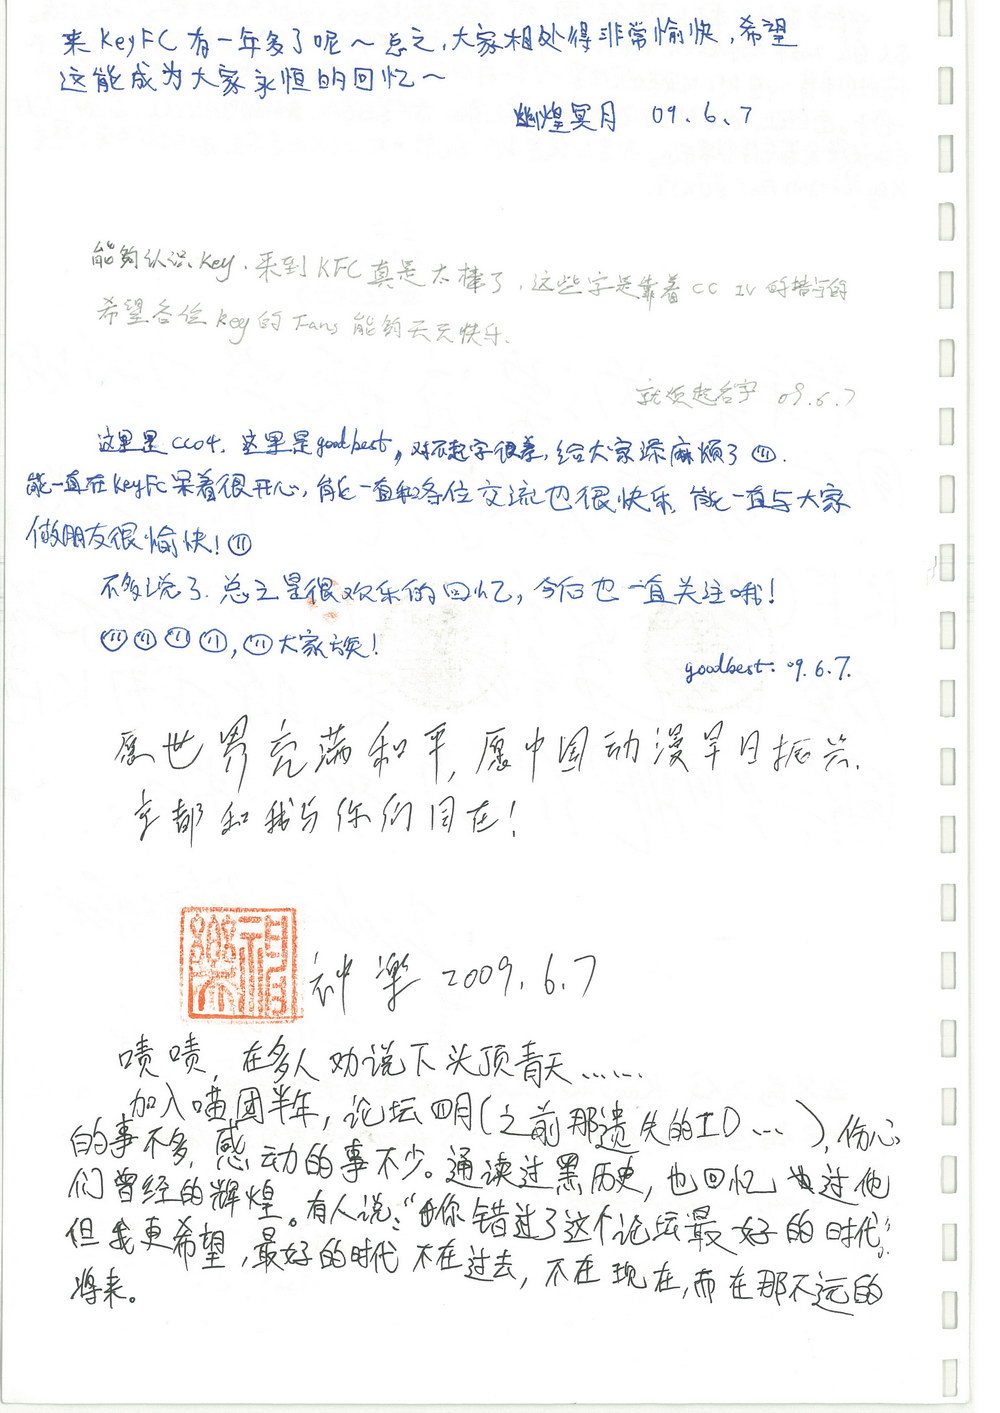 来KeyFC有一年多了呢～总之，大家相处得非常愉快，希望
这能成为大家永恒的回忆～
幽煌冥月 09.6.7
能够认识Key，来到KFC真是太棒了，这些字是靠着CC IV的
希望各位key的Fans能够天天快乐.
就烦起名字 09.6.7
这里是cc04. 这里是goodbest，对不起字很差，给大家添麻烦了
能一直在KeyFC呆着很开心，能一直和各位交流也很快乐，能一直与大家
做朋友很愉快！
不多说了.总之是很欢乐的回忆，今后也一直关注哦！
，大家族！
goodbest. 09.6.7.
愿世界充满和平，愿中国动漫早日振兴.
京都和我与你们同在！
神樂 2009.6.7
啧啧，在多人劝说下头顶青天……
加入喵团半年，论坛四月(之前那遗失的ID…)，伤心
的事不多，感动的事不少。通读过黑历史，也回忆过他
们曾经的辉煌。有人说：“你错过了这个论坛最好的时代”。
但我更希望，最好的时代不在过去，不在现在，而在那不远的
将来。